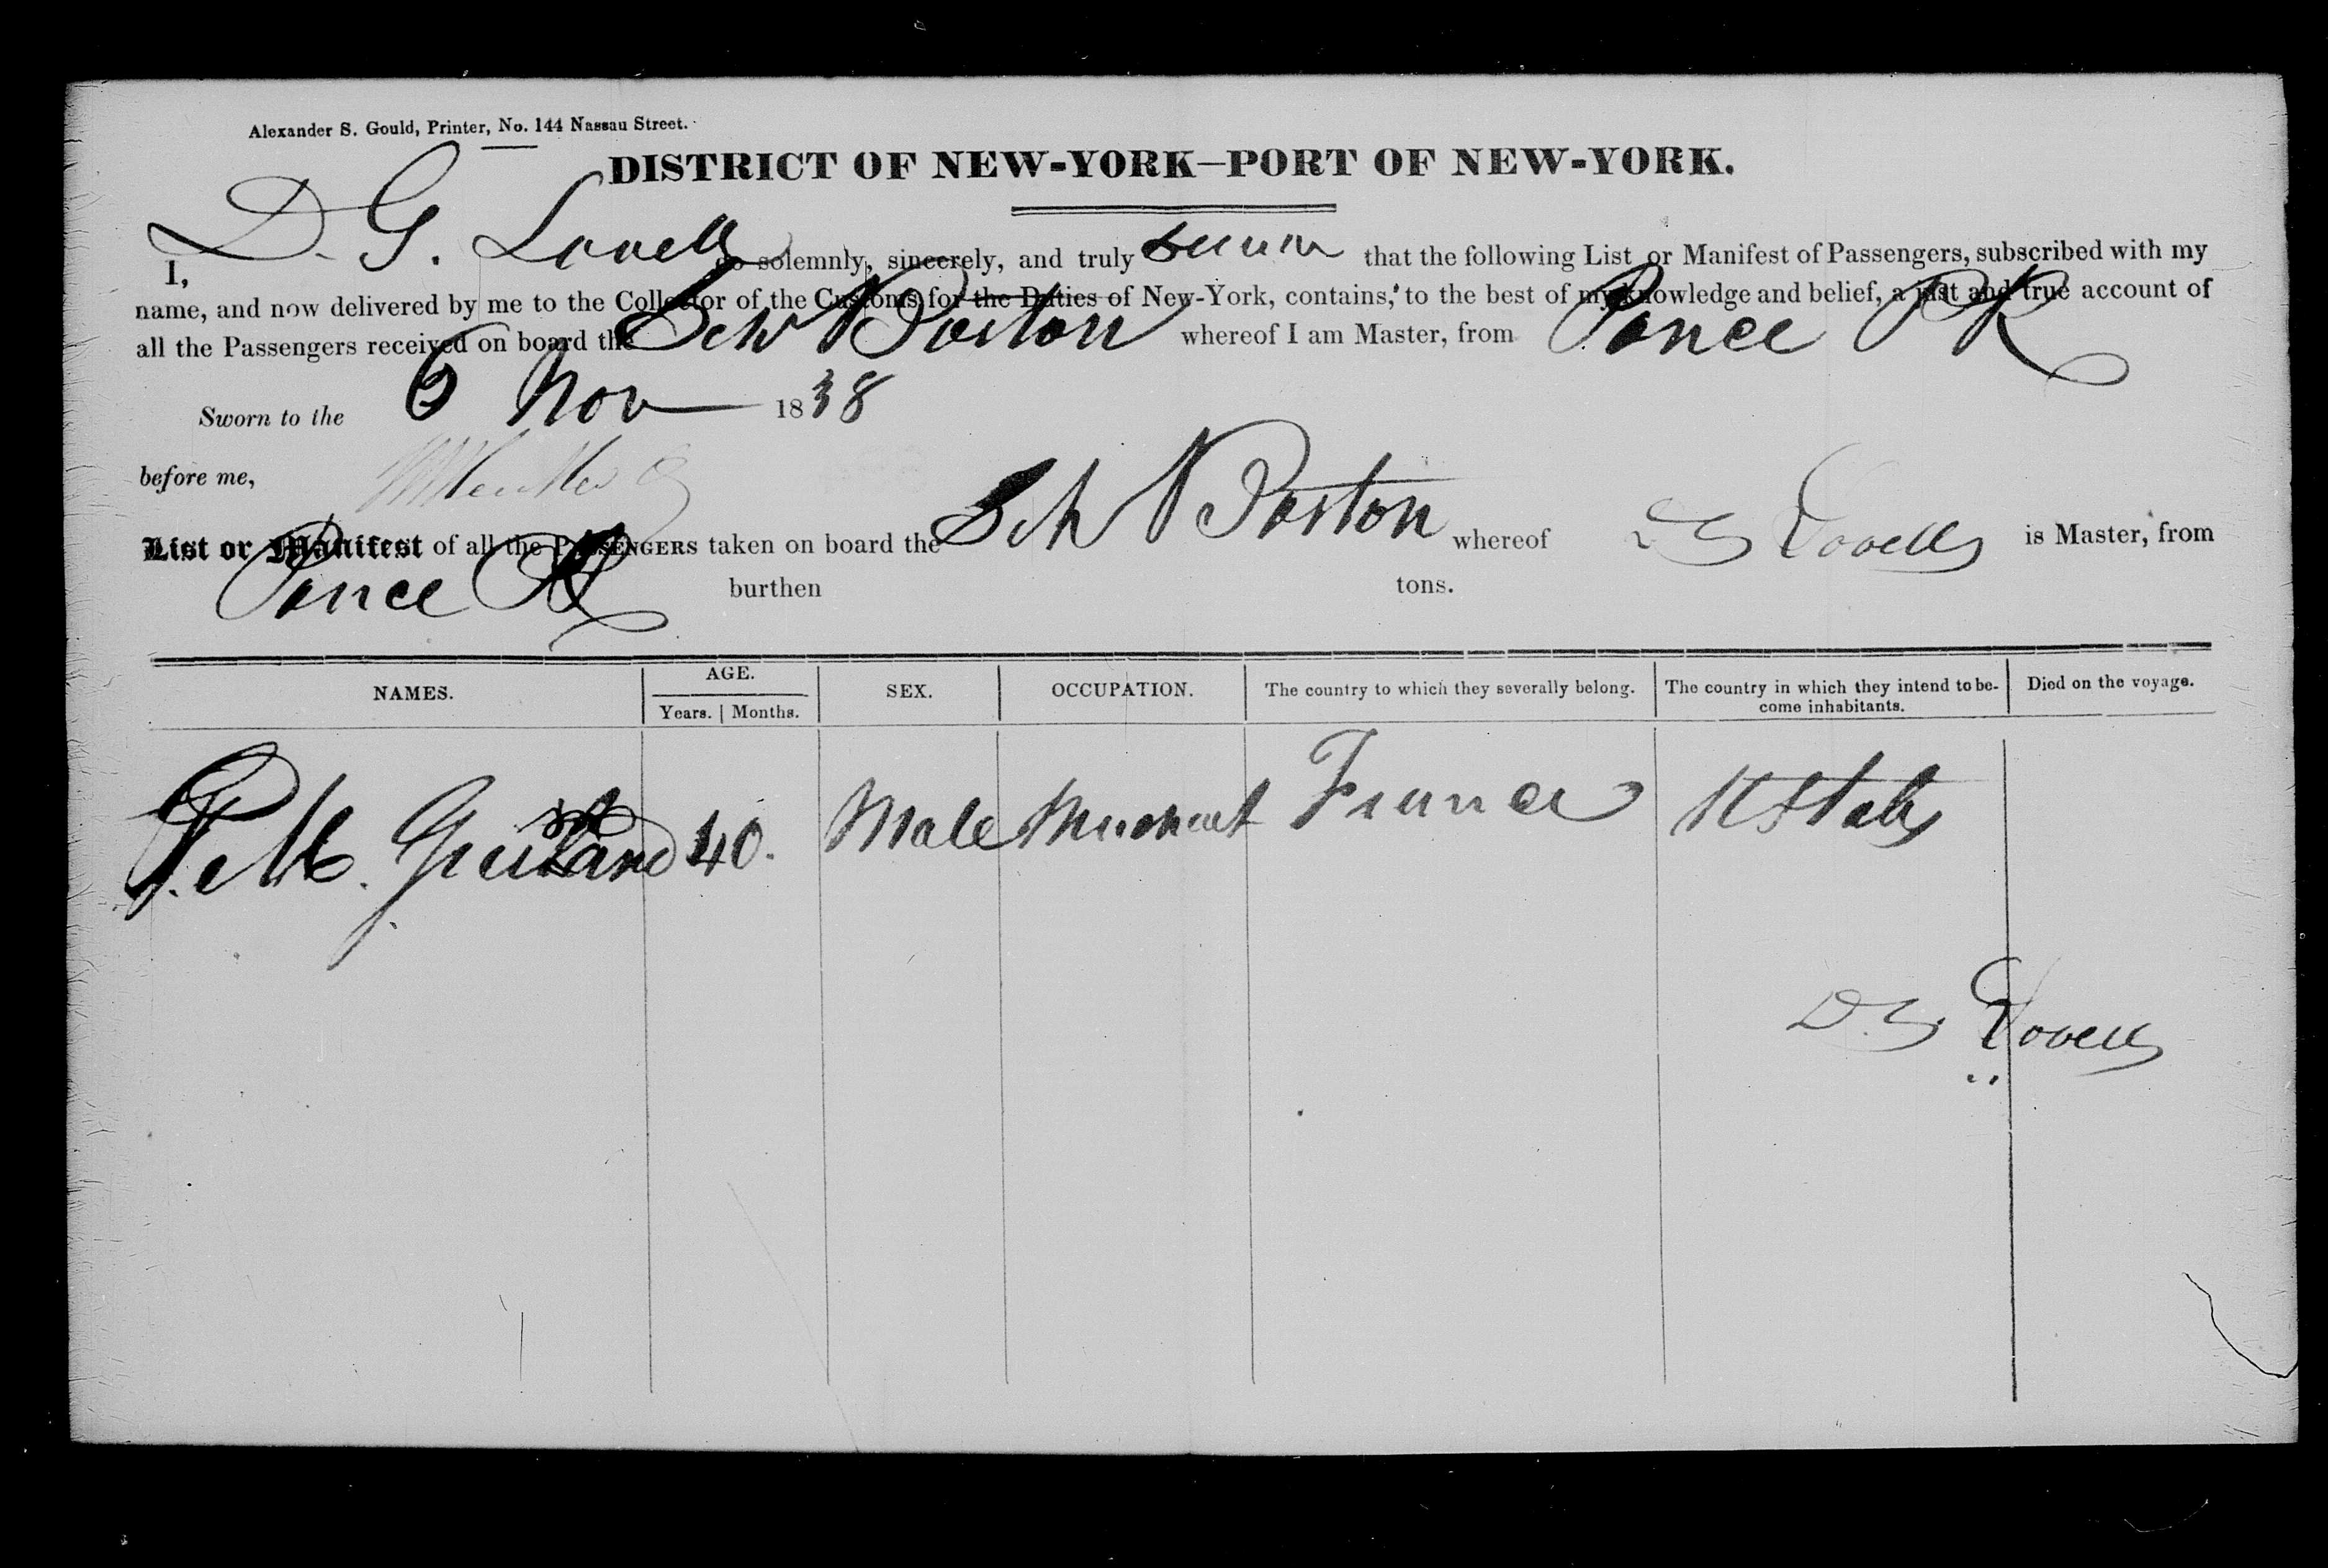 Alexander S. Gould, Printer, No. 144 Nassau Street.
DISTRICT OF NEW-YORK—PORT OF NEW-YORK.
I, D. G. Lovell do solemnly, sincerely, and truly swear that the following List or Manifest of Passengers, subscribed with my
name, and now delivered by me to the Collector of the Customs for the Duties of New-York, contains, to the best of my knowledge and belief, a just and true account of
all the Passengers received on board the Sch Boston whereof I am Master, from Ponce PR
Sworn to the 6 Nov 1838
before me,
List or Manifest of all the PASSENGERS taken on board the Sch Boston whereof D G Lovell is Master, from
Ponce PR burthen tons.
NAMES. AGE. SEX. OCCUPATION. The country to which they severally belong. The country in which they intend to be- Died on the voyage.
Years. Months. come inhabitants.
40. Male Merchant France U States
D. G Lovell